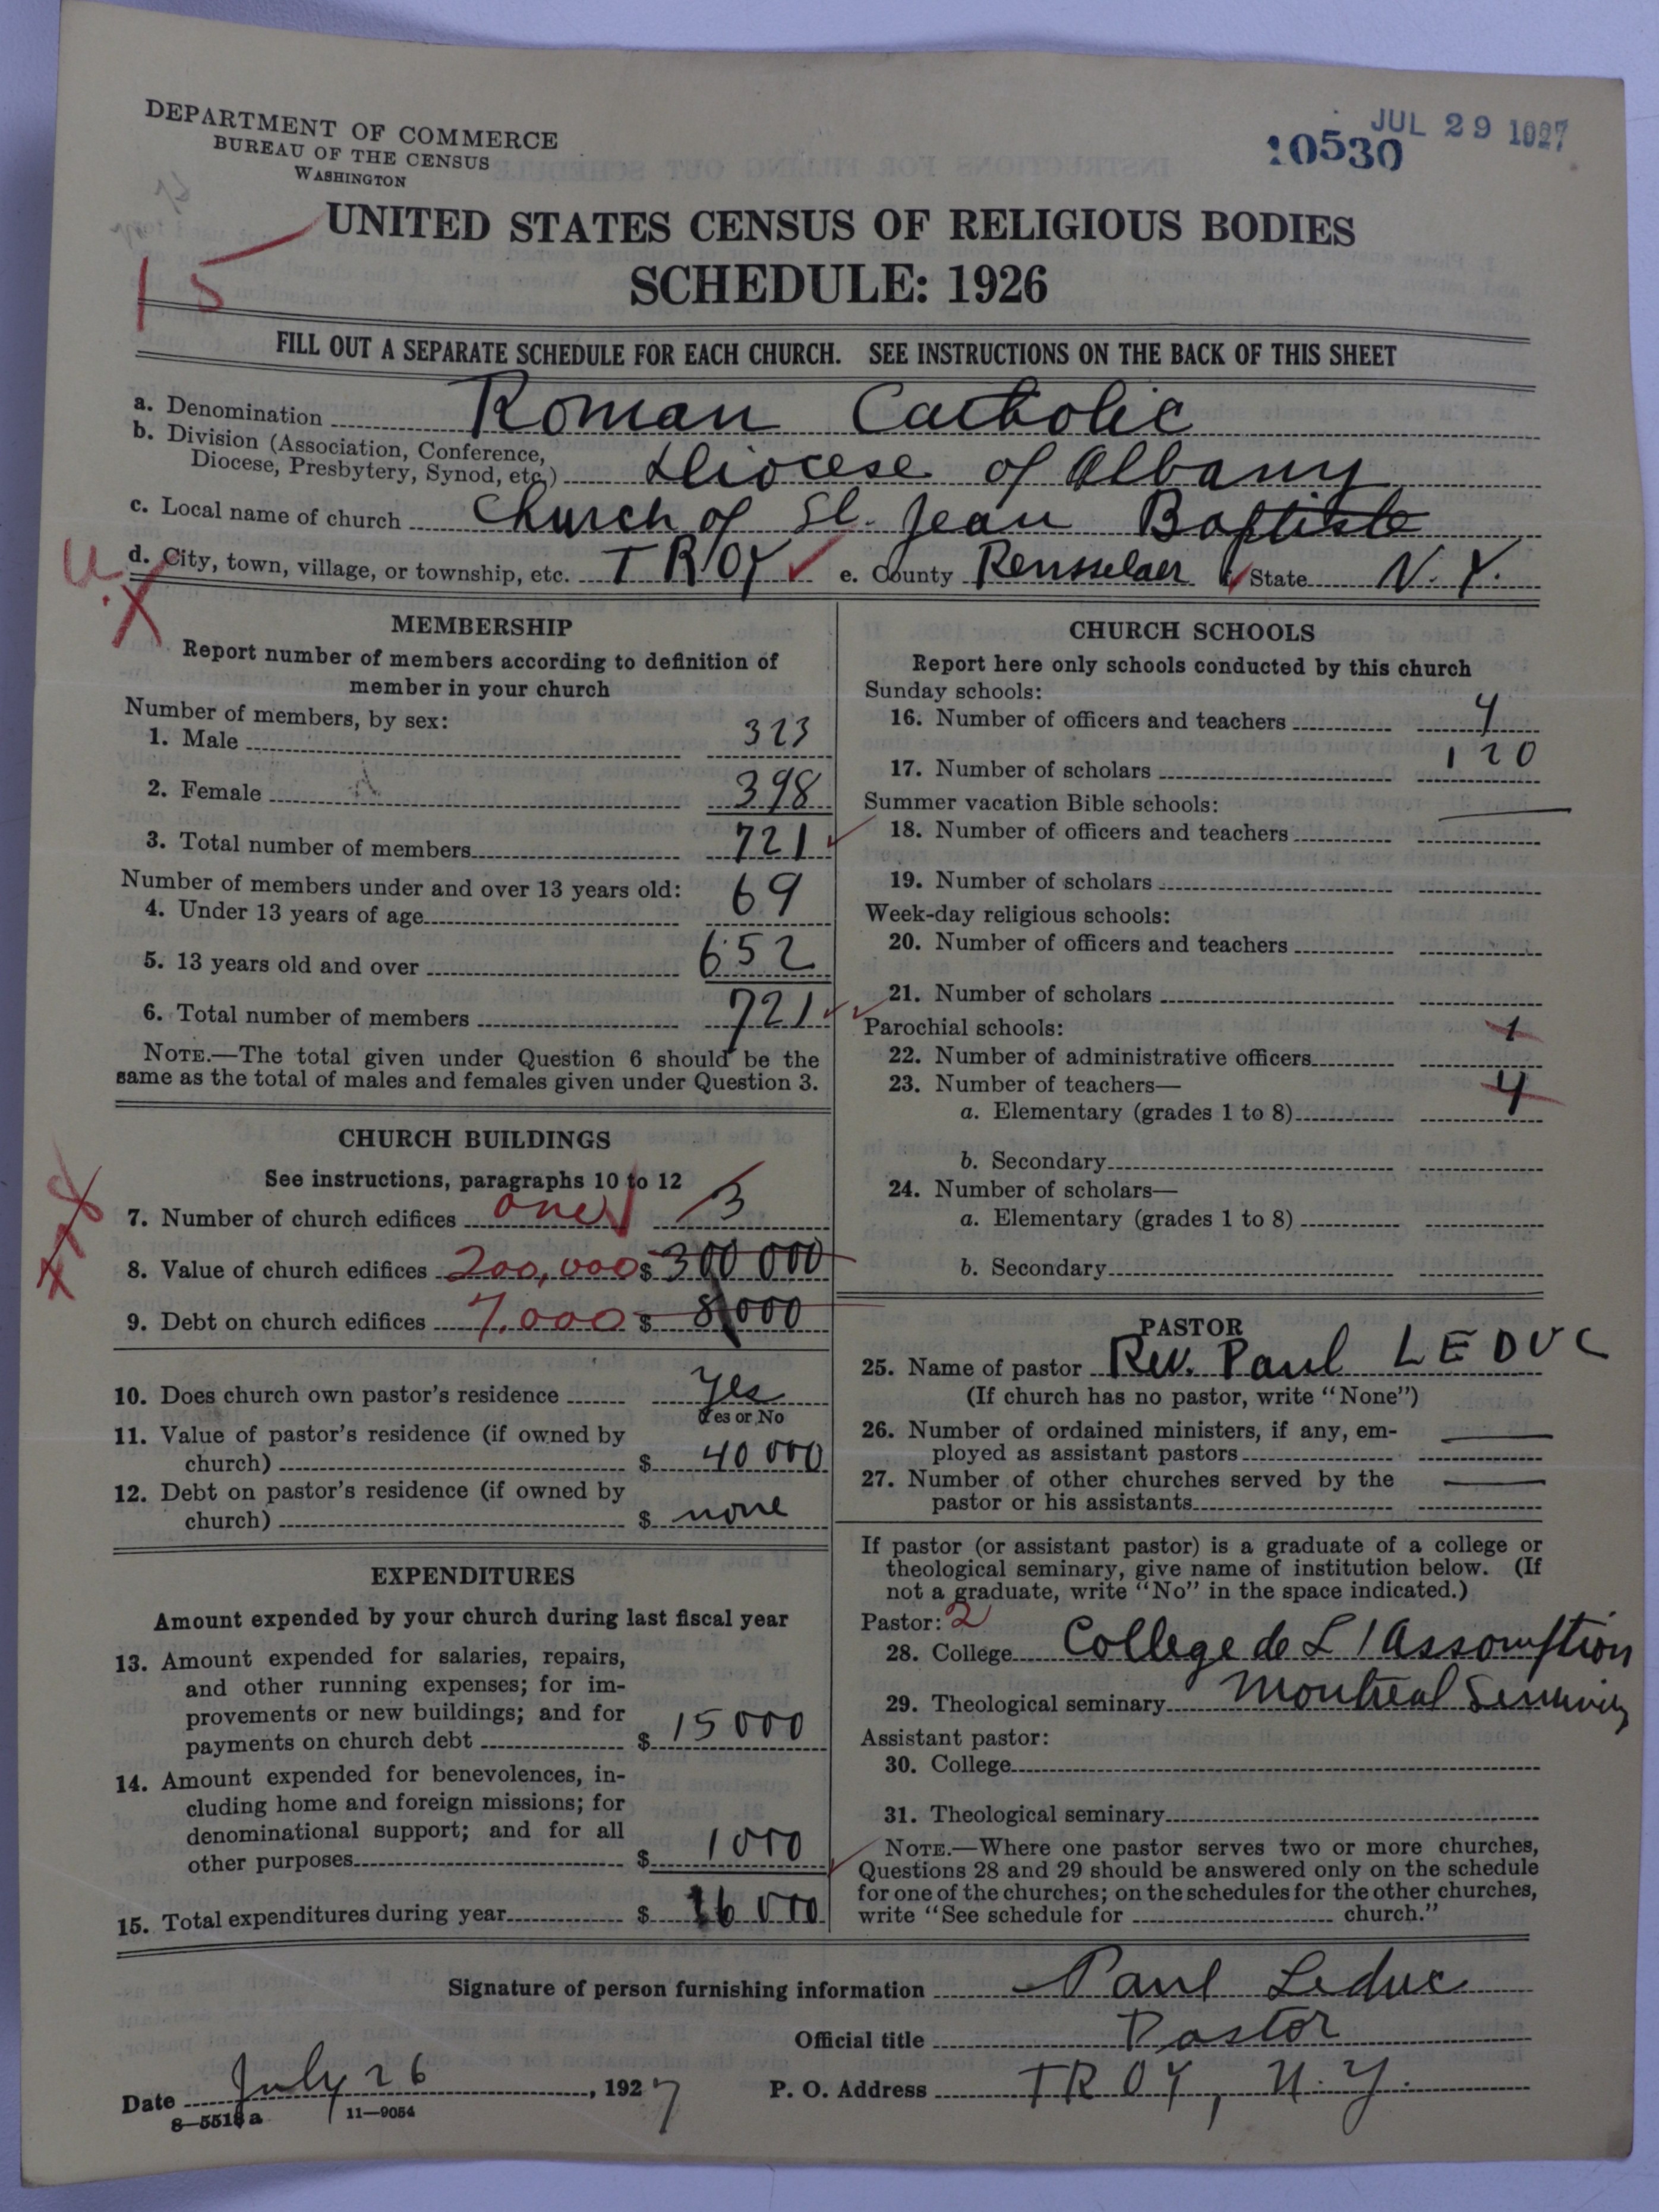 DEPARTMENT OF COMMERCE
BUREAU OF THE CENSUS
WASHINGTON
JUL 29 1927
10530
15
UNITED STATES CENSUS OF RELIGIOUS BODIES
SCHEDULE: 1926
FILL OUT A SEPARATE SCHEDULE FOR EACH CHURCH. SEE INSTRUCTIONS ON THE BACK OF THIS SHEET
a. Denomination Roman Catholic
b. Division (Association, Conference,
Diocese, Presbytery, Synod, etc.) Diocese of Albany
c. Local name of church Church of St. Jean Baptiste
d. City, town, village, or township, etc. TROY e. County Rensselaer State N. Y.
MEMBERSHIP
Report number of members according to definition of
member in your church
Number of members, by sex:
1. Male 323
2. Female 398
3. Total number of members 721
Number of members under and over 13 years old:
4. Under 13 years of age 69
5. 13 years old and over 652
6. Total number of members 721
NOTE.—The total given under Question 6 should be the
same as the total of males and females given under Question 3.
CHURCH BUILDINGS
See instructions, paragraphs 10 to 12
7. Number of church edifices one 3
8. Value of church edifices 200,000 $ 300 000
9. Debt on church edifices 7,000 $ 8000
10. Does church own pastor's residence Yes
Yes or No
11. Value of pastor's residence (if owned by
church) $ 40 000
12. Debt on pastor's residence (if owned by
church) $ none
EXPENDITURES
Amount expended by your church during last fiscal year
13. Amount expended for salaries, repairs,
and other running expenses; for im-
provements or new buildings; and for
payments on church debt $ 15 000
14. Amount expended for benevolences, in-
cluding home and foreign missions; for
denominational support; and for all
other purposes $ 1000
15. Total expenditures during year $ 16 000
CHURCH SCHOOLS
Report here only schools conducted by this church
Sunday schools:
16. Number of officers and teachers 4
17. Number of scholars 120
Summer vacation Bible schools:
18. Number of officers and teachers
19. Number of scholars
Week-day religious schools:
20. Number of officers and teachers
21. Number of scholars
Parochial schools: 1
22. Number of administrative officers
23. Number of teachers— 4
a. Elementary (grades 1 to 8)
b. Secondary
24. Number of scholars—
a. Elementary (grades 1 to 8)
b. Secondary
PASTOR
25. Name of pastor Rev. Paul LEDUC
(If church has no pastor, write "None")
26. Number of ordained ministers, if any, em-
ployed as assistant pastors
27. Number of other churches served by the
pastor or his assistants
If pastor (or assistant pastor) is a graduate of a college or
theological seminary, give name of institution below. (If
not a graduate, write "No" in the space indicated.)
Pastor: 2
28. College College de L'Assomption
29. Theological seminary Montreal Seminary
Assistant pastor:
30. College
31. Theological seminary
NOTE.—Where one pastor serves two or more churches,
Questions 28 and 29 should be answered only on the schedule
for one of the churches; on the schedules for the other churches,
write "See schedule for church."
Signature of person furnishing information Paul Leduc
Official title Pastor
Date July 26, 1927 P. O. Address TROY, N. Y.
8—5518a 11—9054